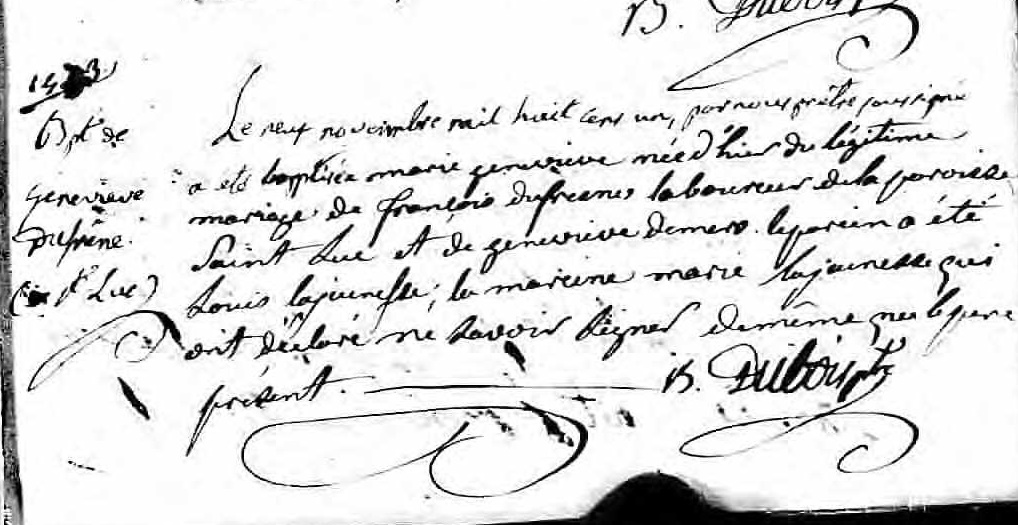 B. Duboi
Bpt. de
Genevieve
Dufrêne.
(St. Luc)
Le neuf novembre mil huit cens un, par nous prêtre soussigné
a été baptisée marie genevieve née d'hier du légitime
mariage de françois dufresnes laboureur de la paroisse
Saint Luc et de genevieve demers. le parein a été
Louis lajeunesse, la mareine marie lajeunesse qui
ont déclaré ne savoir signer de même que le pere
présent.
B. Duboi ptr